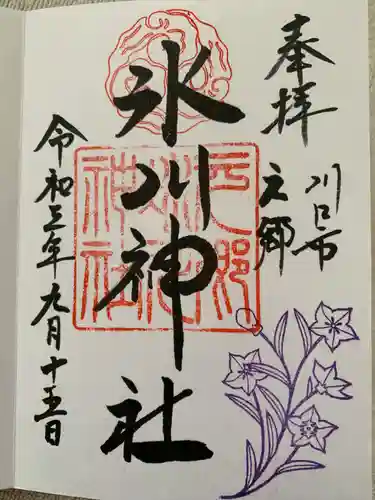 奉拝
川口市
元郷
氷川神社
元郷氷川神社
令和三年九月十五日